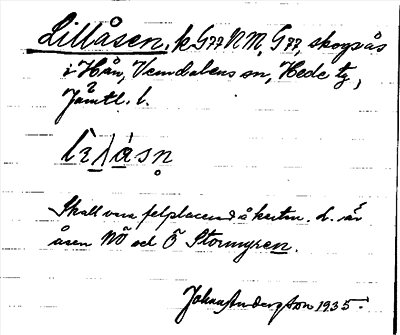 Lillåsen, k G77 NM, G77, skogsås
i Hån, Vemdalens sn, Hede tg,
Jämtl. l.
Skall vara felplacerad å kartan. L. är
åsen NÖ och Ö Stormyren.
Johan Anderzon 1935.